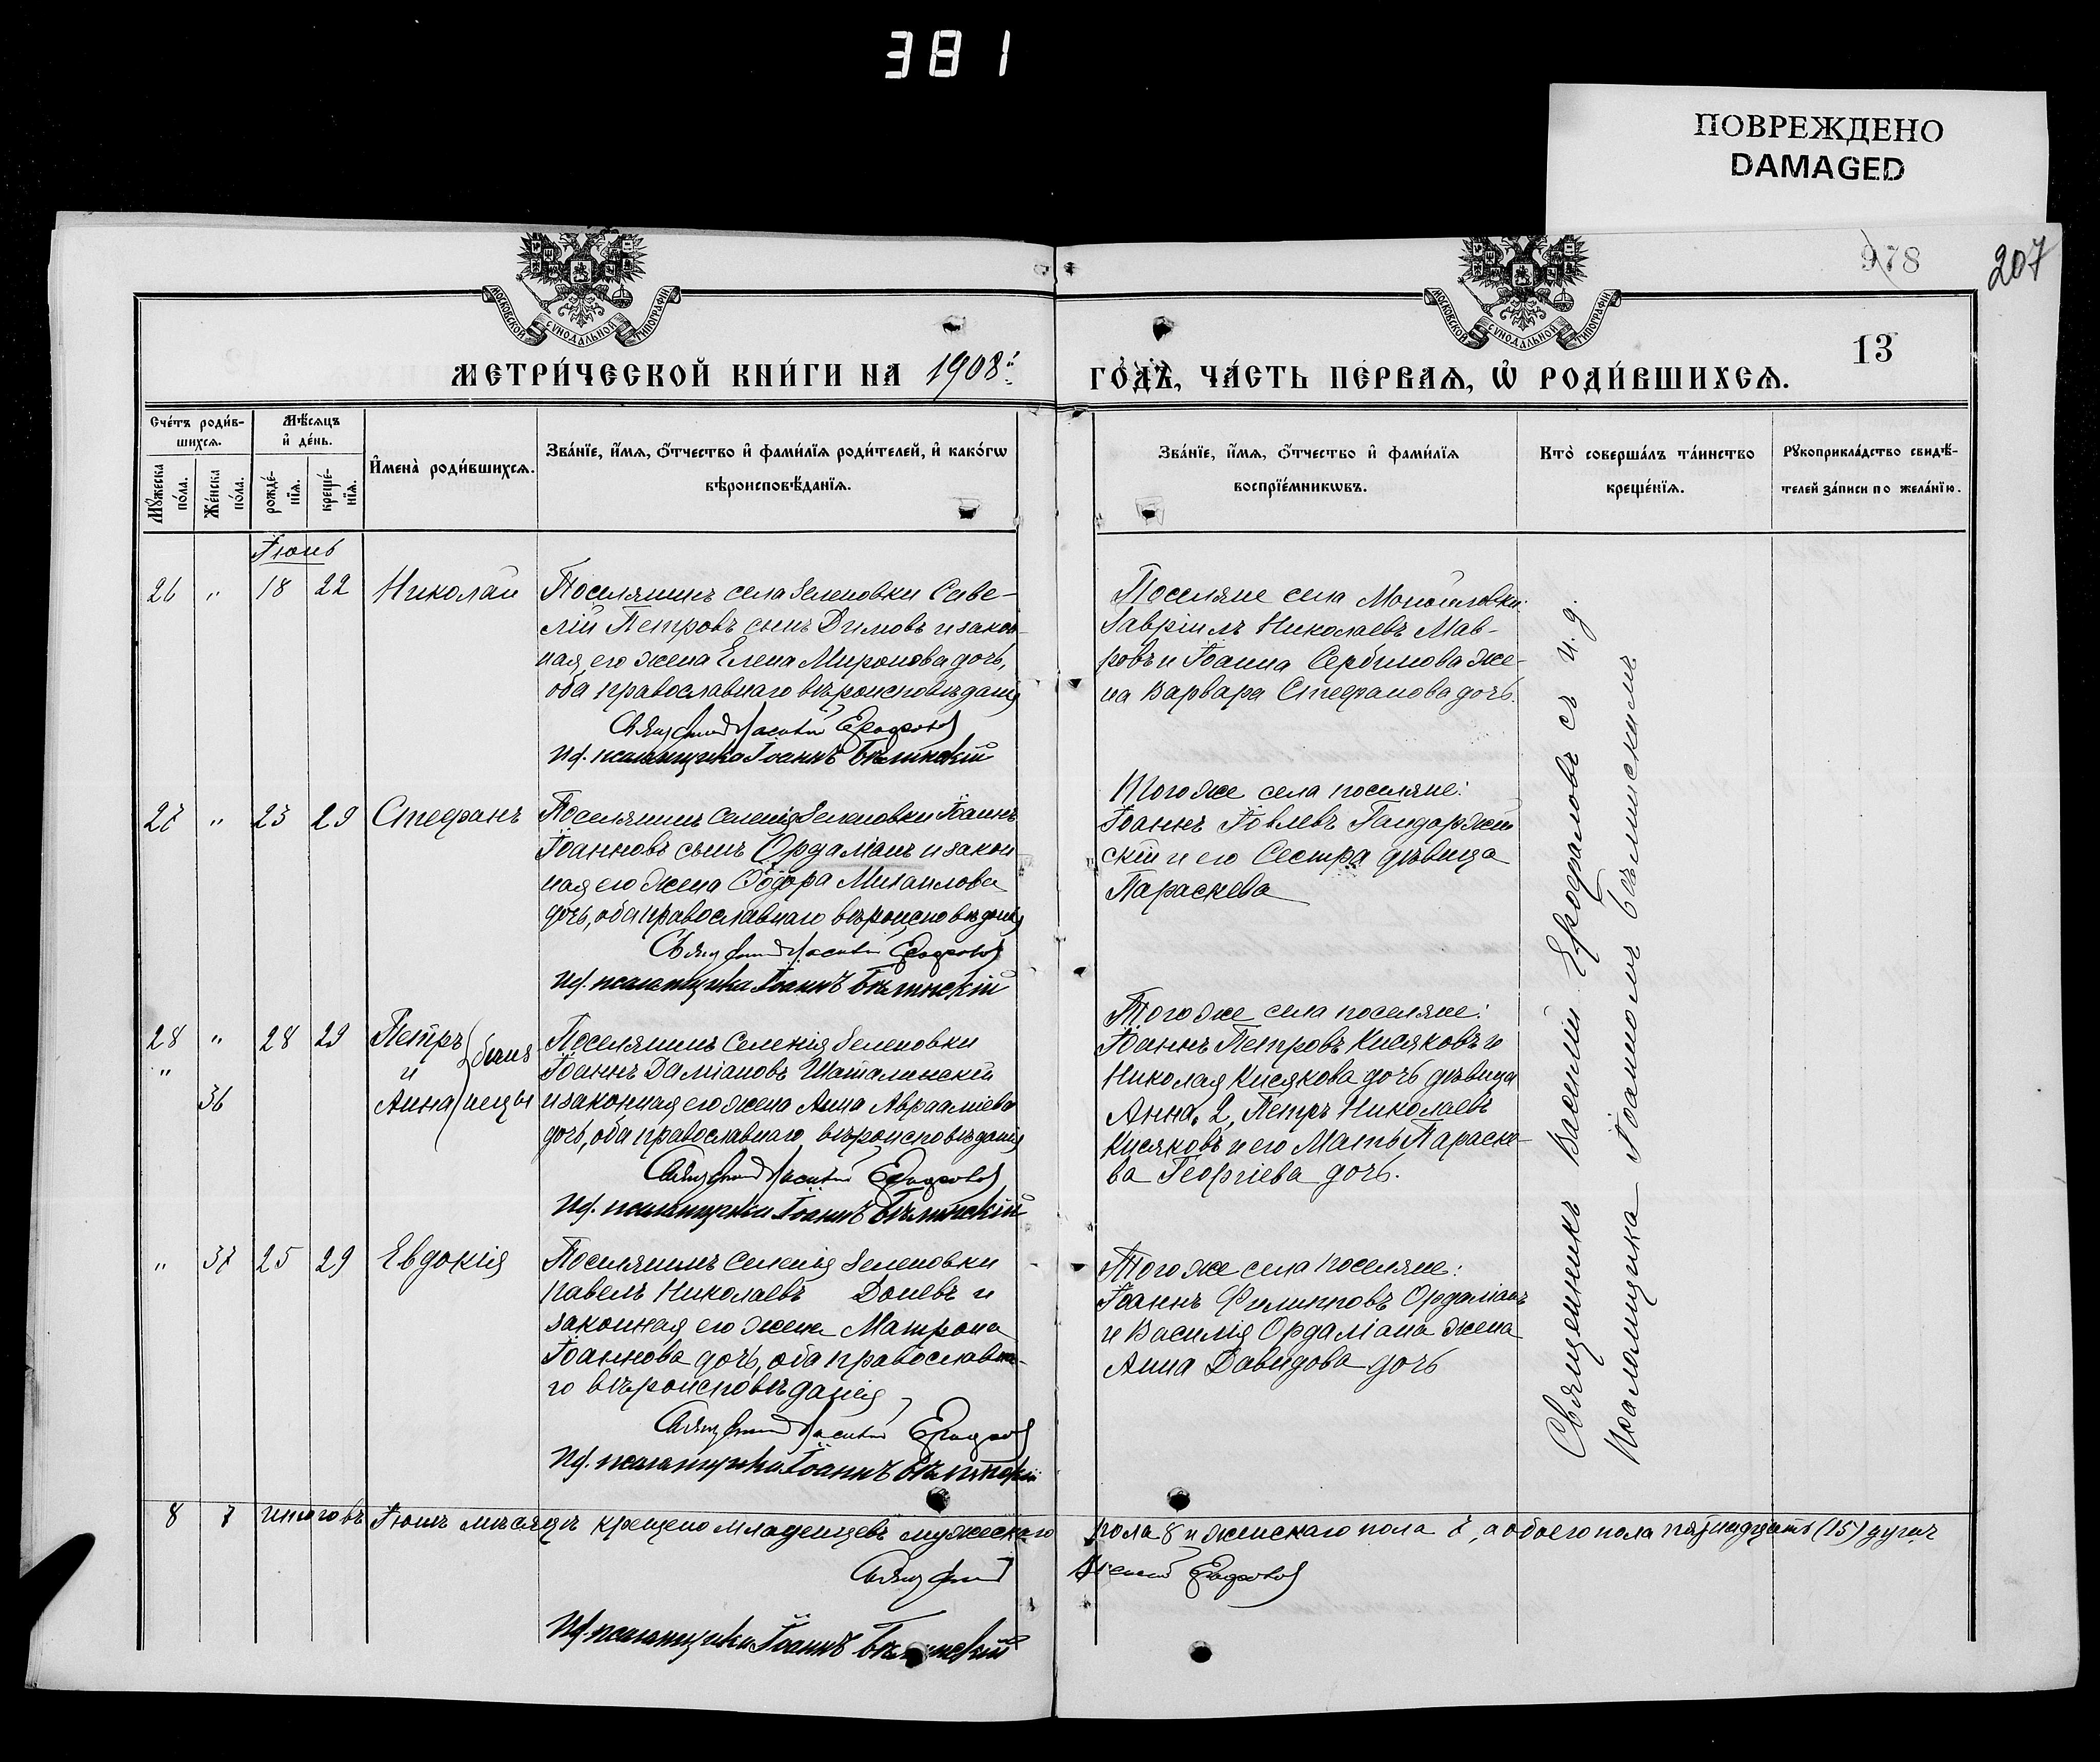 381
ПОВРЕЖДЕНО
DAMAGED
978
207
МОСКОВСКОЙ СѴНОДАЛЬНОЙ ТИПОГРАФІИ
МОСКОВСКОЙ СѴНОДАЛЬНОЙ ТИПОГРАФІИ
13
МЕТРИ́ЧЕСКОЙ КНИ́ГИ НА 1908й
ГО́ДЪ, ЧА́СТЬ ПЕ́РВАѦ, Ѡ҆ РОДИ́ВШИХСѦ.
Сче́тъ роди́в-
шихсѧ.
Мꙋ́жеска по́ла.
Же́нска по́ла.
Мѣ́сѧцъ
и҆ де́нь.
рожде́-
нїѧ.
креще́-
нїѧ.
И҆мена̀ роди́вшихсѧ.
Зва́нїе, и҆́мѧ, ѻ҆́тчество и҆ фами́лїѧ роди́телей, и҆ како́гѡ
вѣроисповѣ́данїѧ.
Зва́нїе, и҆́мѧ, ѻ҆́тчество и҆ фами́лїѧ
воспрїе́мникѡвъ.
Кто̀ соверша́лъ та́инство
креще́нїѧ.
Рꙋкоприкла́дство свидѣ́-
телей за́писи по жела́нїю.
Іюнь
26 " 18 22 Николай
Поселянинъ села Зеленовки Саве-
лій Петровъ сынъ Димовъ и закон-
ная его жена Елена Миронова дочь,
оба православнаго вѣроисповѣданія
Священникъ Василій Ерофаловъ
Ид. псаломщика Іоаннъ Бѣлинскій
Поселяне села
Гавріилъ Николаевъ Мав-
ровъ и Іоанна Сербинова же-
на Варвара Стефанова дочь.
27 " 23 29 Стефанъ
Поселянинъ Селенія Зеленовки Іоаннъ
Іоанновъ сынъ Ордаліанъ и закон-
ная его жена Ѳеодора Михаилова
дочь, оба православнаго вѣроисповѣданія
Священникъ Василій Ерофаловъ
Ид. псаломщика Іоаннъ Бѣлинскій
Того же села поселяне:
Іоаннъ Іовлевъ
скій и его Сестра дѣвица
Параскева
28 " 28 29 Петръ
" и близ
36 Анна нецы
Поселянинъ Селенія Зеленовки
Іоаннъ Даміановъ Шаталинскій
и законная его жена Анна Авраамиева
дочь, оба православнаго вѣроисповѣданія
Священникъ Василій Ерофаловъ
Ид. псаломщика Іоаннъ Бѣлинскій
Того же села поселяне:
Іоаннъ Петровъ Кисяковъ и
Николая Кисякова дочь дѣвица
Анна. 2, Петръ Николаевъ
Кисяковъ и его Мать Параске-
ва Георгіева дочь.
" 37 25 29 Евдокія
Поселянинъ Селенія Зеленовки
Павелъ Николаевъ Доневъ и
законная его жена Матрона
Іоаннова дочь, оба православна-
го вѣроисповѣданія
Священникъ Василій Ерофаловъ
Ид. псаломщика Іоаннъ Бѣлинскій
Того же села поселяне:
Іоаннъ Филипповъ Ордаліанъ
и Василія Ордаліана жена
Анна Давидова дочь
Священникъ Василій Ерофаловъ съ и. д.
Псаломщика Іоанномъ Бѣлинскимъ
8 7 итого въ Іюнѣ мѣсяцѣ крещено младенцевъ мужескаго
пола 8 и женскаго пола 7, а обоего пола пятнадцать (15) душъ
Священникъ Василій Ерофаловъ
Ид. псаломщика Іоаннъ Бѣлинскій